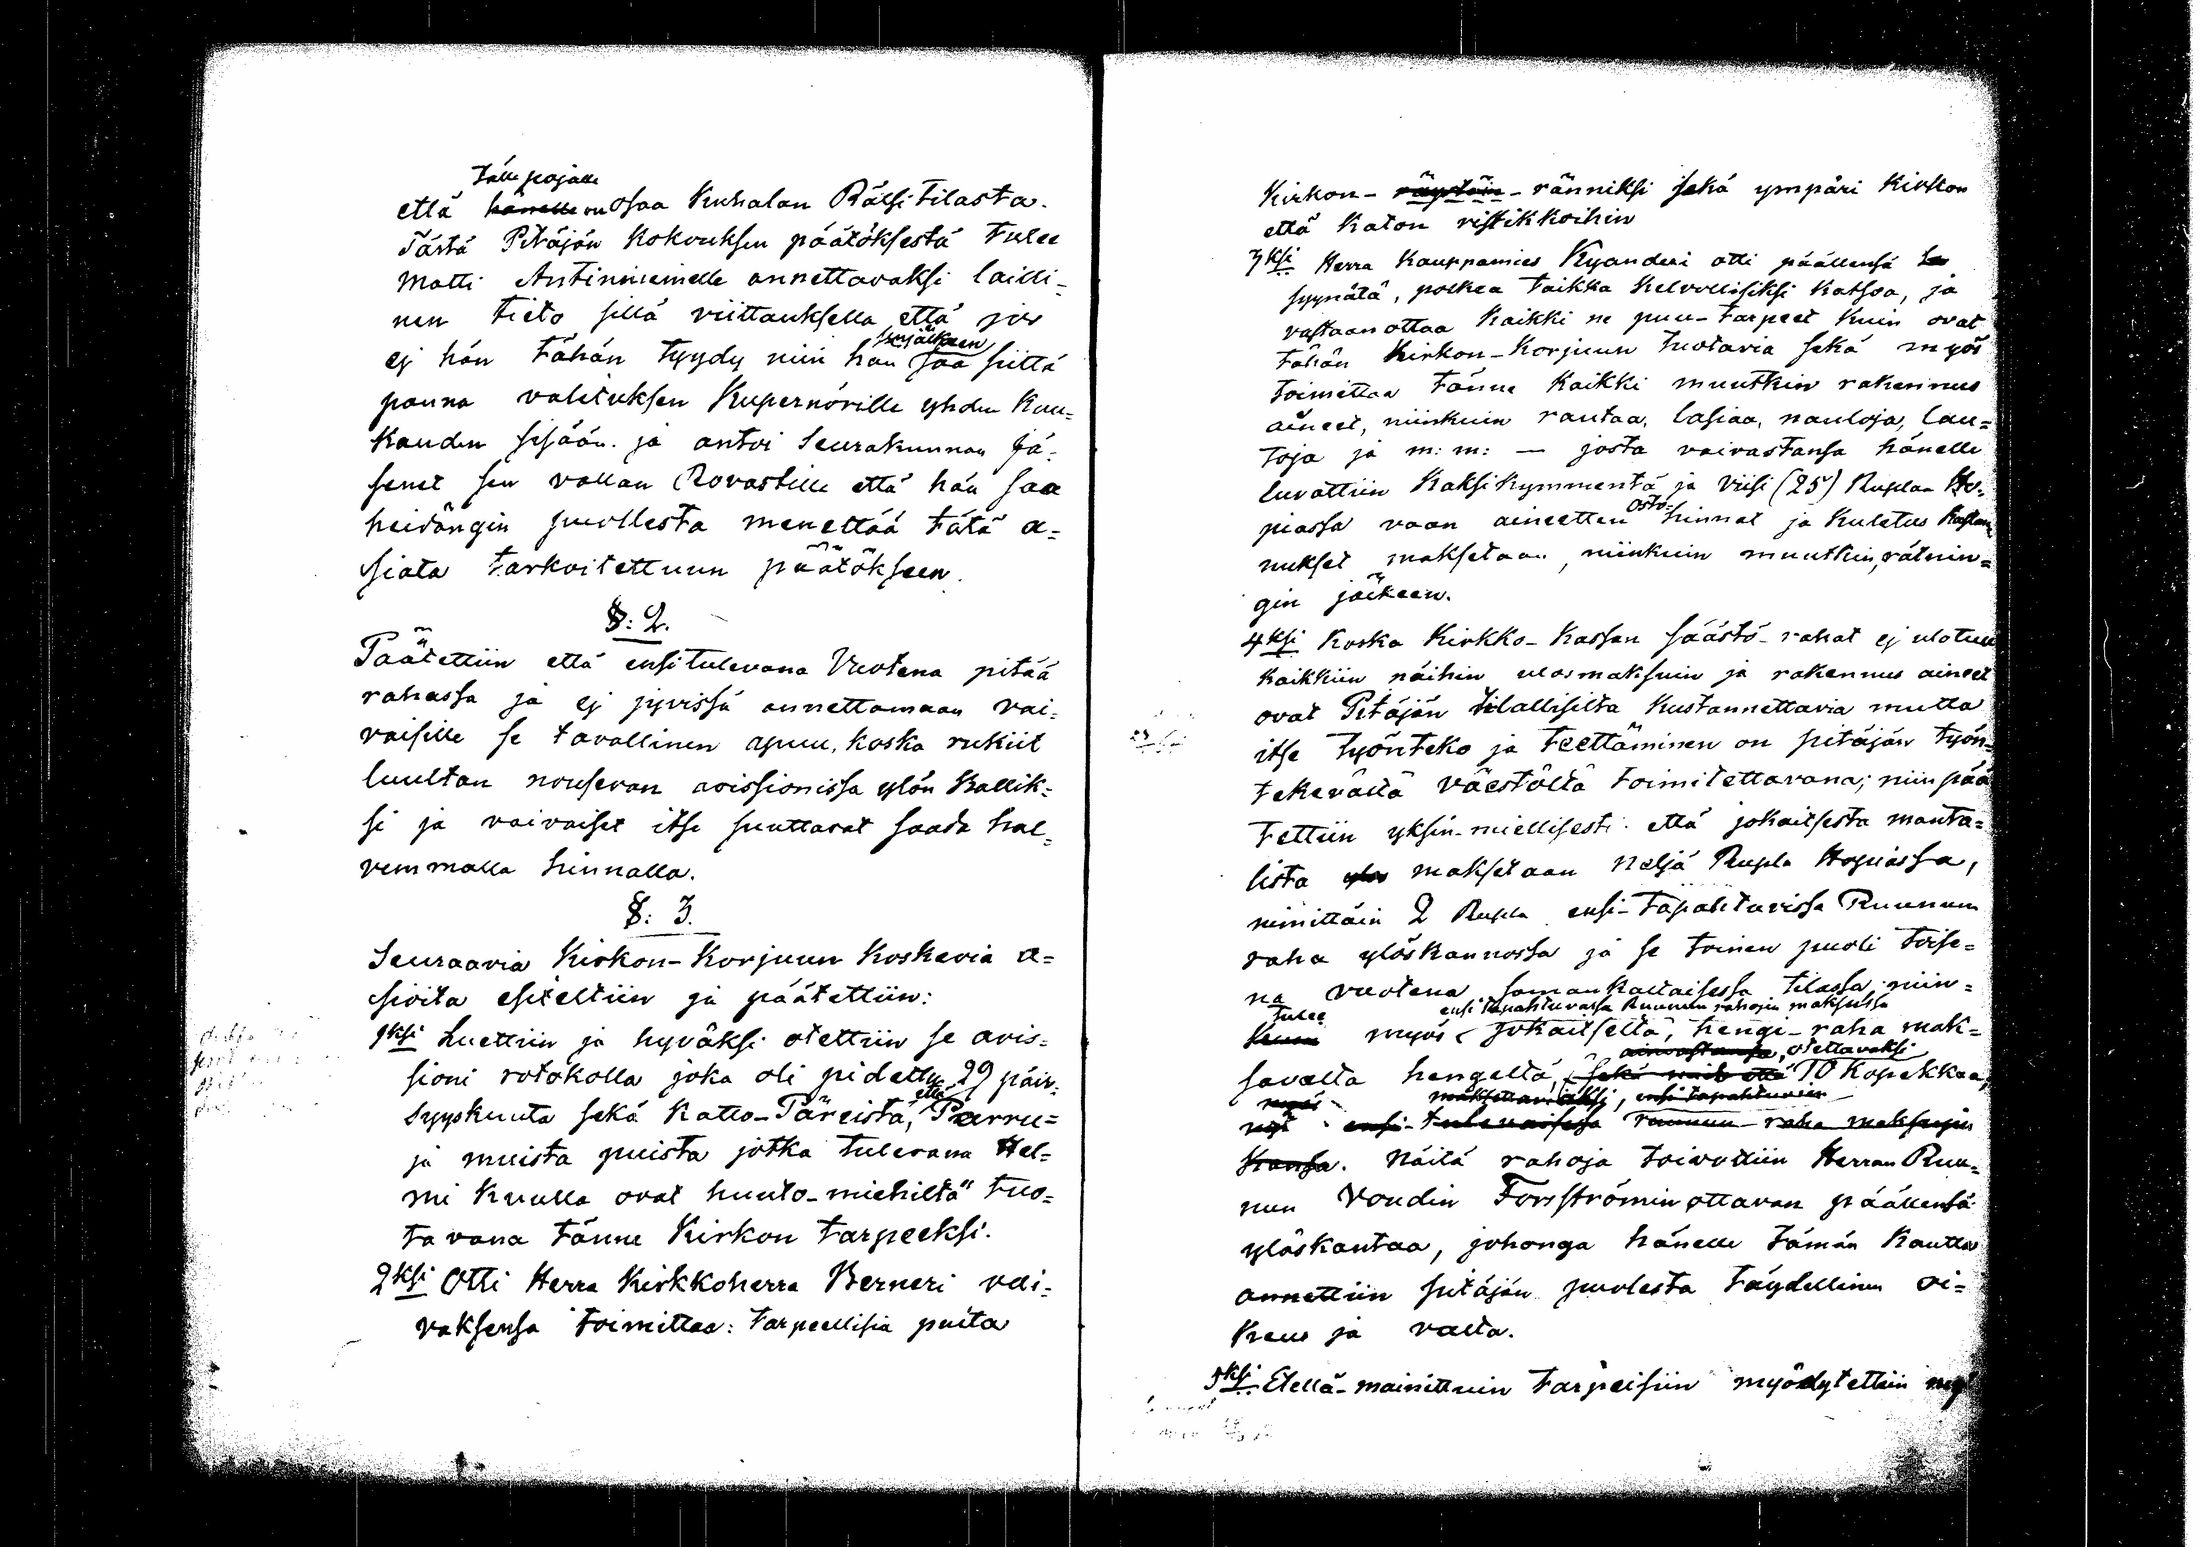 tälle pojalle
että hänelle on osaa Kuhalan Rälsitilasta.
Tästä Pitäjän Kokouksen päätöksestä tulee
Matti Antinniemelle annettavaksi lailli-
nen tieto sillä viittauksella että jos
senjälkeen
ej hän tähän tyydy niin hän saa siittä
panna valituksen Kupernörille yhden kuu-
kauden sisään. ja antoi Seurakunnan jä-
senet sen vallan Rovastille että hän saa
heidängin puollesta menettää tätä a-
siata tarkoitettuun päätökseen.
§: 2.
Päätettiin että ensitulevana Vuotena pitää
rahassa ja ej jyvissä annettaman vai-
vaisille se tavallinen apuu, koska rukiit
luultan nousevan avissionissa ylön kallik-
si ja vaivaiset itse suuttavat saada hal-
vemmalla hinnalla.
§: 3.
Seuraavia Kirkon-Korjuun koskevia a-
sioita esiteltiin ja päätettiin:
1ksi Luettiin ja hyväksi otettiin se avis-
sioni rotokolla joka oli pidetty 29 päiv.
että
Syyskuuta sekä Katto-Päreistä, Parru-
ja muista puista jotka tulevana Hel-
mi kuulla ovat huuto-miehiltä tuo-
tavana tänne Kirkon tarpeeksi.
2ksi Otti Herra Kirkkoherra Berneri vai-
vaksensa toimittaa: tarpeellisia puita
Kirkon- räystään - ränniksi sekä ympäri Kirkon
että Katon ristikkoihin
3ksi Herra Kauppamies Kyanderi otti päällensä
syynätä, polkea taikka Kelvollisiksi Katsoa, ja
vastaanottaa kaikki ne puu-tarpeet kuin ovat
tähän Kirkon-Korjuun tuotavia sekä myös
toimittaa tänne kaikki muutkin rakennus
aineet, niinkuin rautaa, lasiaa, nauloja, lau-
toja ja m: m: — josta vaivastansa hänelle
luvattiin Kaksikymmentä ja viisi (25) Ruplaa Ho-
osto-
piassa vaan aineetten hinnat ja kuletus kustan-
nukset maksetaan, niinkuin muuttkin, rätnin-
gin jälkeen.
4ksi Koska Kirkko-Kassan säästö-rahat ej ulotuu
kaikkiin näihin ulosmaksuin ja rakennus aineet
ovat Pitäjän tilallisilta kustannettavia mutta
itse työnteko ja teettäminen on pitäjän työn-
tekevältä väestöltä toimitettavana; niin pää
tettiin yksin-miellisesti että jokaitsesta manta-
lista ylös maksetaan neljä Rupla Hopiassa,
nimittäin 2 Rupla ensi-tapahtuvissa Ruunun
raha ylöskannossa ja se toinen puoli toise-
na vuotena samankaltaisessa tilassa niin-
tulee ensi tapahtuvassa Ruunun rahojen maksussa
kuin myös jokaitselta, hengi-raha mak-
ainoastansa, otettavaksi
savalta hengeltä, sekä 10 Kopekkaa,
myös maksettaviksi, ensi tapahtuvien
nyt ensi-tulevaisessa ruunun-raha maksujen
kansa. Näitä rahoja toivottiin Herran Ruu-
nun Voudin Forsströmin ottavan päällensä
ylöskantaa, johonga hänelle tämän kautta
annettiin pitäjän puolesta täydellinen oi-
keus ja valta.
5ksi Etellä-mainittuin tarpeisiin myödytettiin